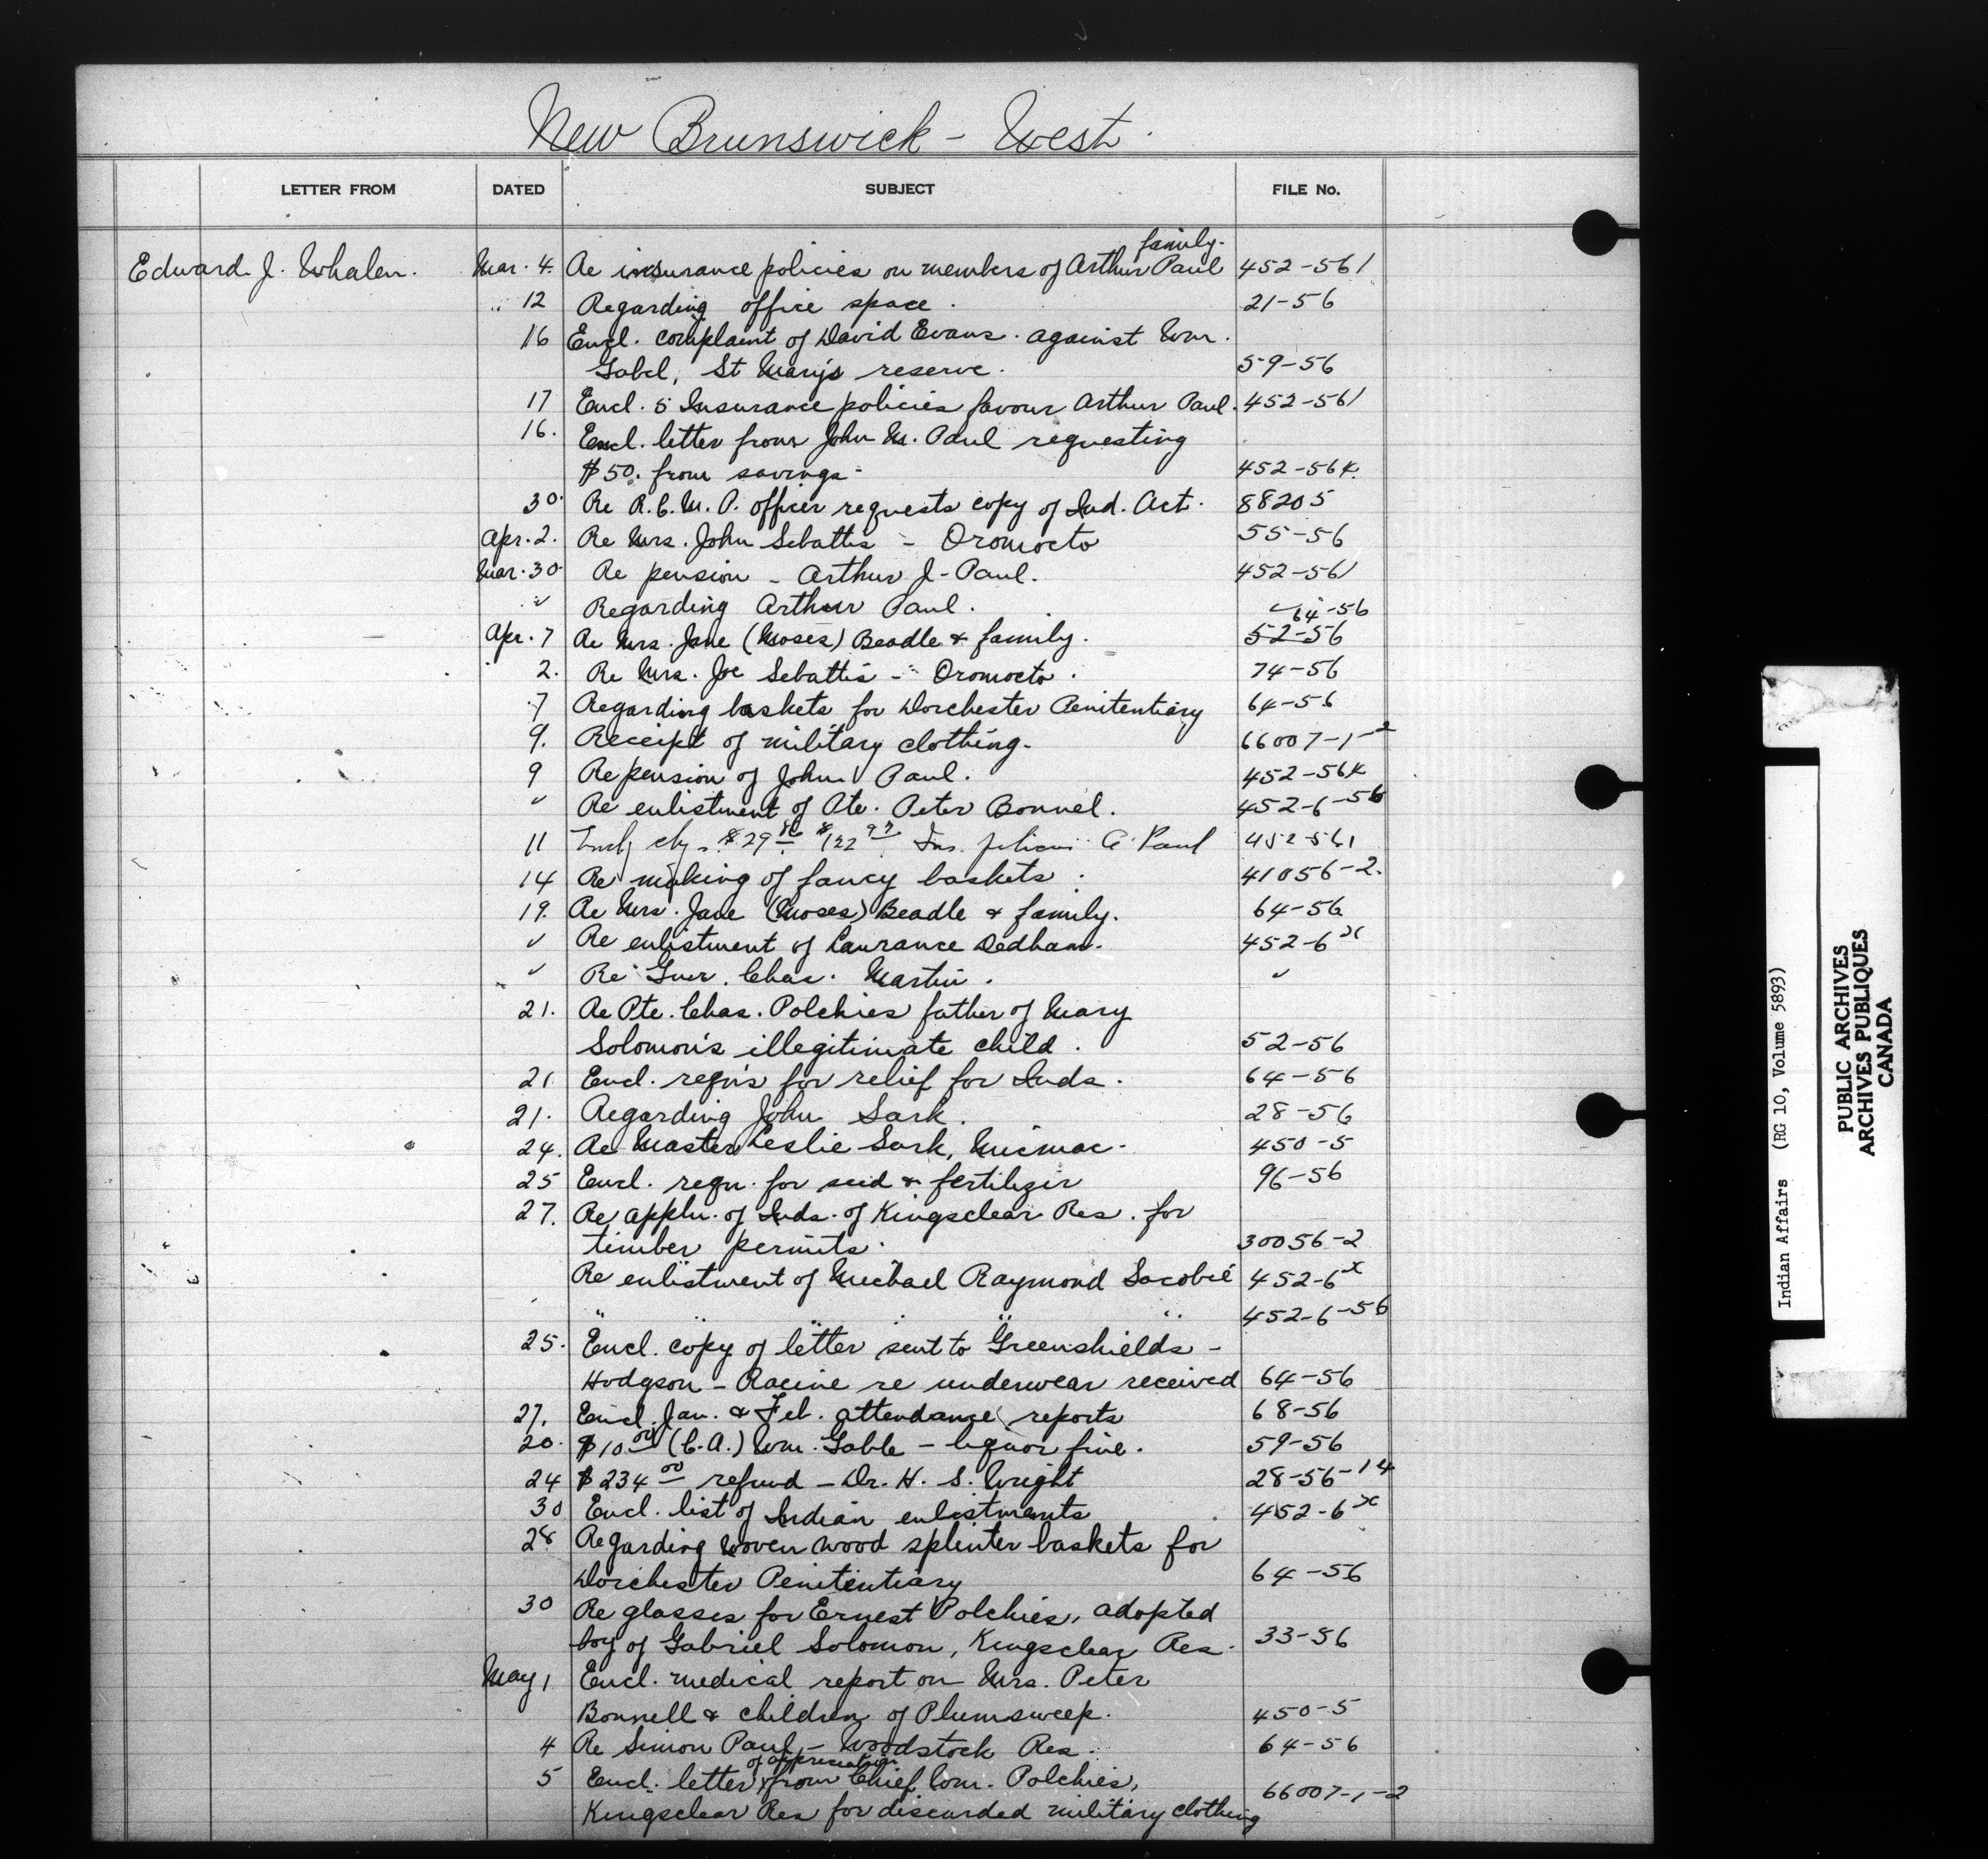 New Brunswick - West.
LETTER FROM DATED SUBJECT FILE No.
family.
Edward J. Whalen. Mar. 4. Re insurance policies on members of Arthur Paul 452-561
" 12 Regarding office space. 21-56
16 Encl. complaint of David Evans. against Wm.
Gabel, St Mary's reserve. 59-56
17 Encl. 5 Insurance policies favour Arthur Paul. 452-561
16. Encl. letter from John M. Paul requesting
$50. from savings. 452-564.
30. Re R.C.M.P. officer requests copy of Ind. Act. 88205
Apr. 2. Re Mrs. John Sebattis - Oromocto 55-56
Mar. 30. Re pension - Arthur J. Paul. 452-561
" Regarding Arthur Paul. 64-56
Apr. 7 Re Mrs. Jane (Moses) Beadle & family. 52-56
2. Re Mrs. Joe Sebattis - Oromocto. 74-56
7 Regarding baskets for Dorchester Penitentiary 64-56
9. Receipt of military clothing. 66007-1-2
9 Re pension of John Paul. 452-564
" Re enlistment of Pte. Peter Bonnel. 452-6-56
11 $29 $122 Ins. A. Paul 452-561
14 Re making of fancy baskets. 41056-2.
19. Re Mrs. Jane (Moses) Beadle & family. 64-56
" Re enlistment of Laurance Dedham. 452-6 x
" Re Gnr. Chas. Martin. "
21. Re Pte. Chas. Polchies father of Mary
Solomon's illegitimate child. 52-56
21 Encl. reqn's for relief for Inds. 64-56
21. Regarding John Sark. 28-56
24. Re Master Leslie Sark, Micmac. 450-5
25 Encl. reqn. for seed & fertilizer 96-56
27. Re appln. of Inds. of Kingsclear Res. for
timber permits. 30056-2
Re enlistment of Michael Raymond Sacobie 452-6 x
" " " " 452-6-56
25. Encl. copy of letter sent to Greenshields -
Hodgson - Racine re underwear received 64-56
27. Encl. Jan. & Feb. attendance reports 68-56
20. $10.00 (C.A.) Wm. Gable - liquor fine. 59-56
24 $234.00 refund - Dr. H. S. Wright 28-56-14
30 Encl. list of Indian enlistments 452-6 x
28 Regarding woven wood splinter baskets for
Dorchester Penitentiary 64-56
30 Re glasses for Ernest Polchies, adopted
boy of Gabriel Solomon, Kingsclear Res. 33-56
May 1 Encl. medical report on Mrs. Peter
Bonnell & children of Plumsweep. 450-5
4 Re Simon Paul - Woodstock Res. 64-56
of appreciation
5 Encl. letter from Chief Wm. Polchies,
Kingsclear Res for discarded military clothing 66007-1-2
Indian Affairs (RG 10, Volume 5893)
PUBLIC ARCHIVES
ARCHIVES PUBLIQUES
CANADA